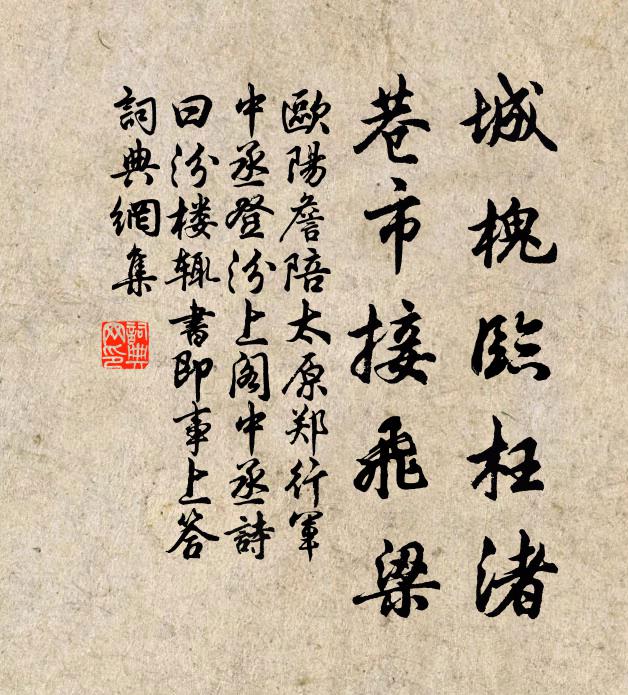 城槐臨枉渚
巷市接飛梁
歐陽詹陪太原郑行軍
中丞登汾上阁中丞詩
曰汾楼辄書即事上答
詞典網集
詞典网印